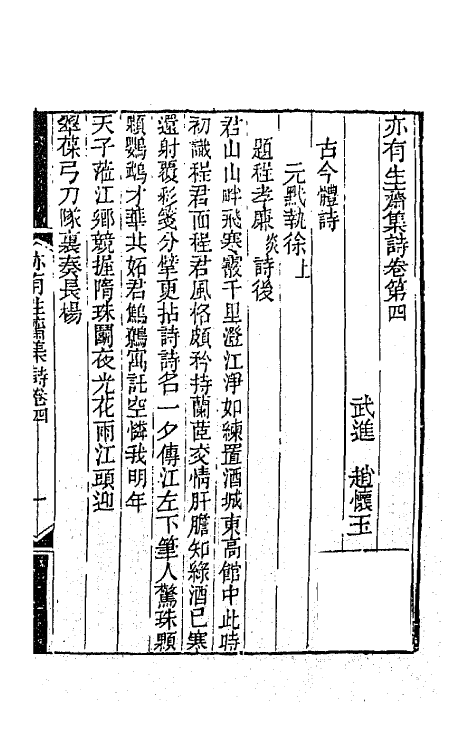 亦有生齋集詩卷第四
武進　趙懷玉
古今體詩
元黓執徐上
題程孝廉詩後
君山山畔飛寒霰千里澄江淨如練置酒城東高館中此時
初識程君面程君風格頗矜持蘭茝交情肝膽知綠酒已寒
還射覆彩箋分擘更拈詩詩名一夕傳江左下筆人驚珠顆
顆鸚鵡才華共妬君鷦鷯寓託空憐我明年
天子蒞江鄉競握隋珠鬬夜光花雨江頭迎
翠葆弓刀隊裏奏長楊
亦有生齋集　詩卷四　一